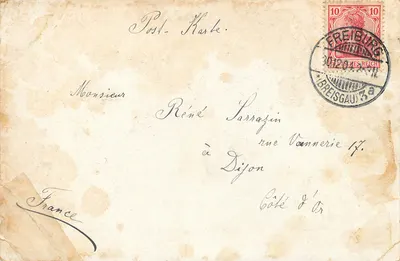 Post-Karte.
10 10
FREIBURG
10.12.04.
(BREISGAU) 3a
Monsieur
René Sarrazin
rue Vannerie 17.
à Dijon
Côté d'Or
France